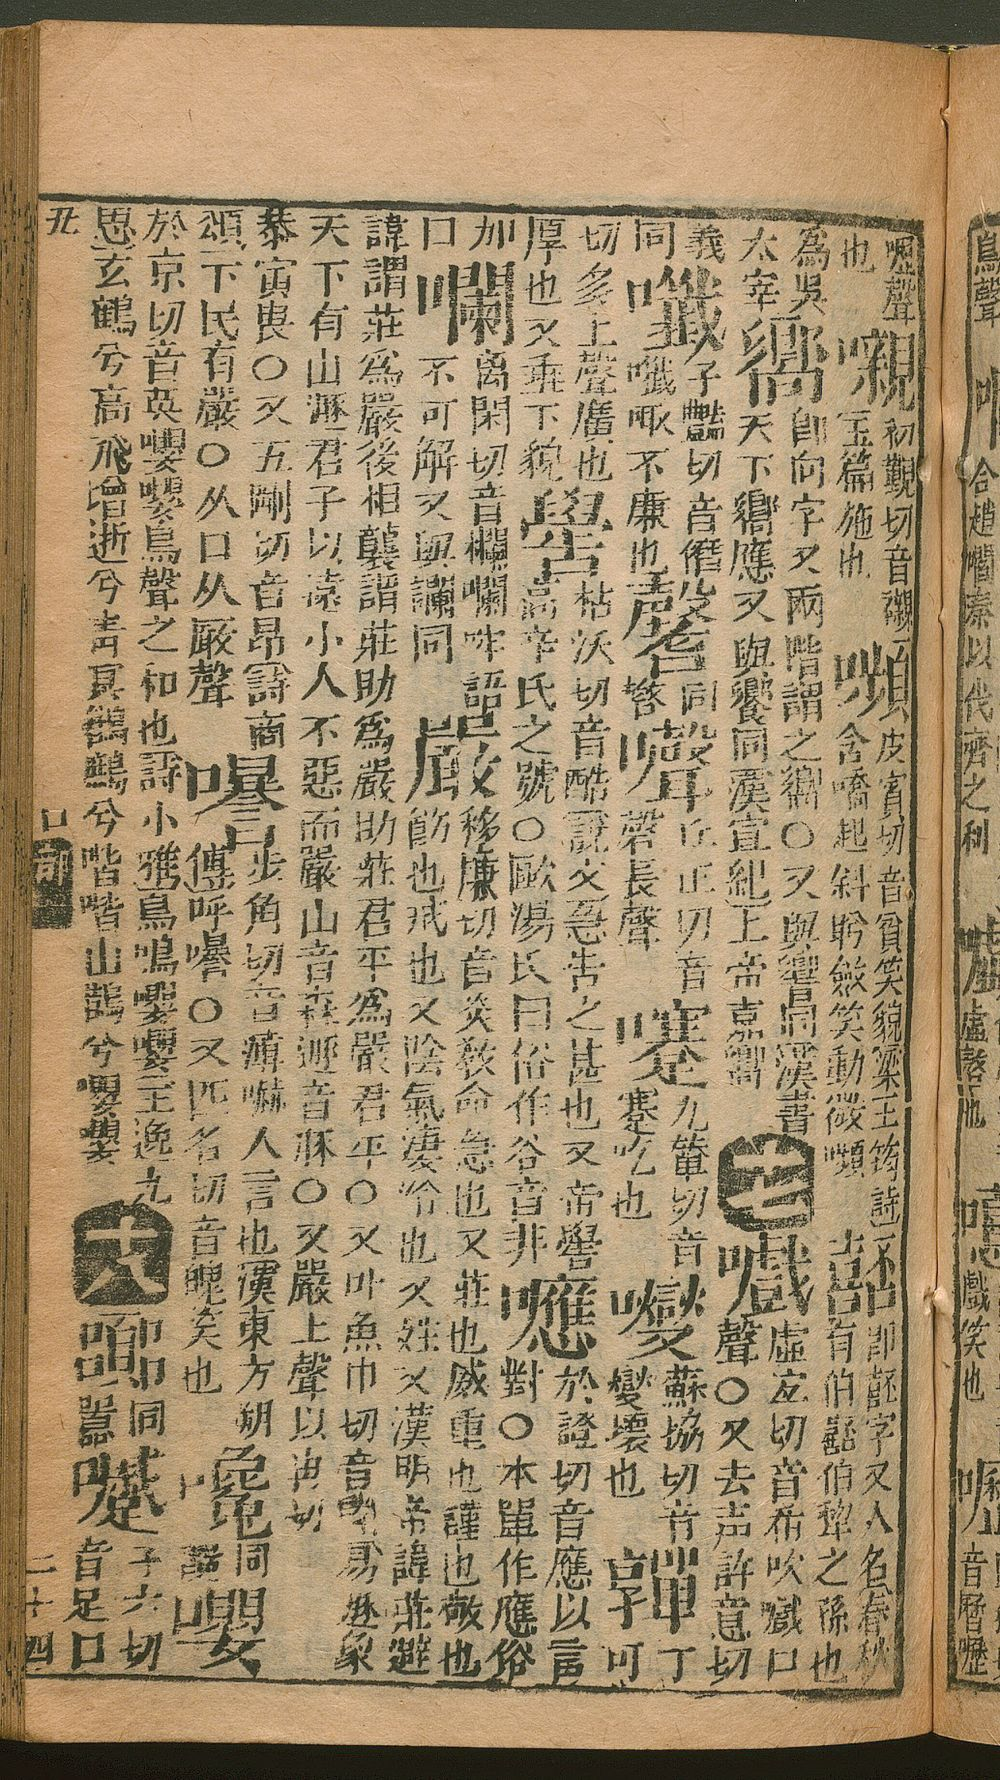 嚦聲
也
嚫
初覲切音襯
玉篇施也
嚬
皮賓切音貧笑貌梁王筠詩
含嬌起斜盼斂笑動微嚬
嚭
即嚭字又人名春秋
有伯嚭伯犂之孫也
為吳
太宰
嚮
即向字又兩階謂之嚮○又與響同漢書
天下嚮應又與饗同漢宣紀上帝嘉嚮
十七
嚱
虛宜切音希吹嚱口
聲○又去声許意切
義
同
子豔切音僭
不廉也
同
丘正切音
磬長聲
九輦切音
蹇吃也
蘇協切音
燮壞也
嚲
丁
可
切多上聲廣也
厚也又垂下貌
嚳
枯沃切音酷說文急告之甚也又帝嚳
高辛氏之號○歐陽氏曰俗作谷音非
噟
於證切音應以言
對○本單作應俗
加
口
囒
离閑切音欄囒哰語
不可解又與讕同
嚴
移廉切音炎教命急也又莊也威重也謹也敬也
飭也戒也又陰氣凄冷也又姓又漢明帝諱莊避
諱謂莊為嚴後相襲謂莊助為嚴助莊君平為嚴君平○又叶魚巾切音 易遯象
天下有山遯君子以遠小人不惡而嚴山音森遯音 ○又嚴上聲以冉切
恭寅畏○又五剛切音昂詩商
頌下民有嚴○从口从厰聲
步角切音 嚇人言也漢東方朔
傳呼謈○又匹各切音 矣也
同
嚶
於京切音英嚶嚶鳥聲之和也詩小雅鳥鳴嚶嚶王逸九
思玄鶴兮高飛曾逝兮青冥鶬鶊兮喈喈山鵲兮嚶嚶
十八
即同
囂
子六切
音足口
丑
口部
二十四